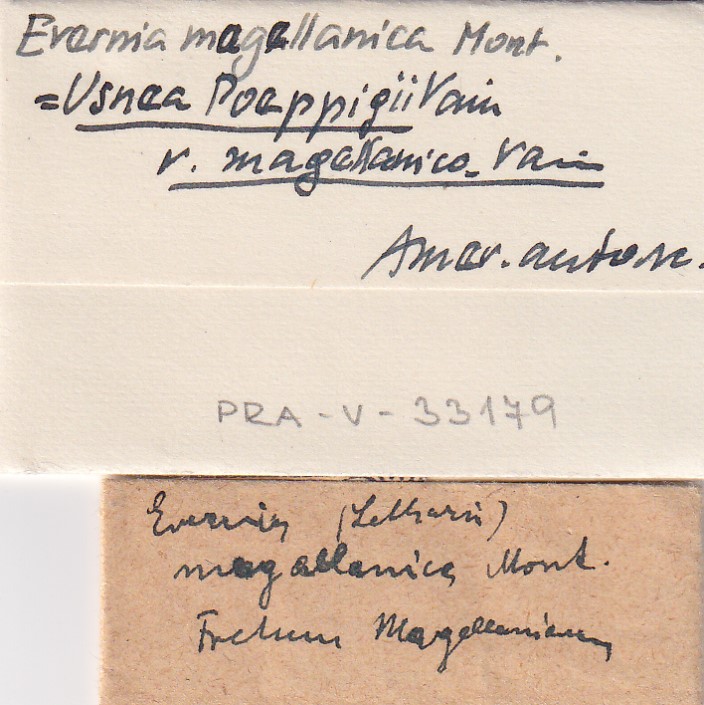 Evernia magellanica Mont.
=Usnea Poeppigii Vain
v. magellanica Vain
Amer. antarc.
PRA-V-33179
Evernia (Letharia)
magellanica Mont.
Fretum Magellanicum